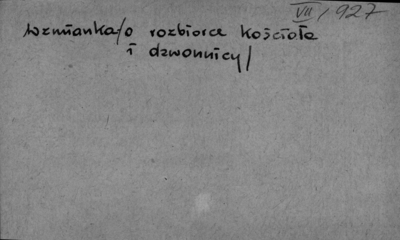 VII/927
Wzmianka/o rozbiorce Kościoła
i dzwonnicy/